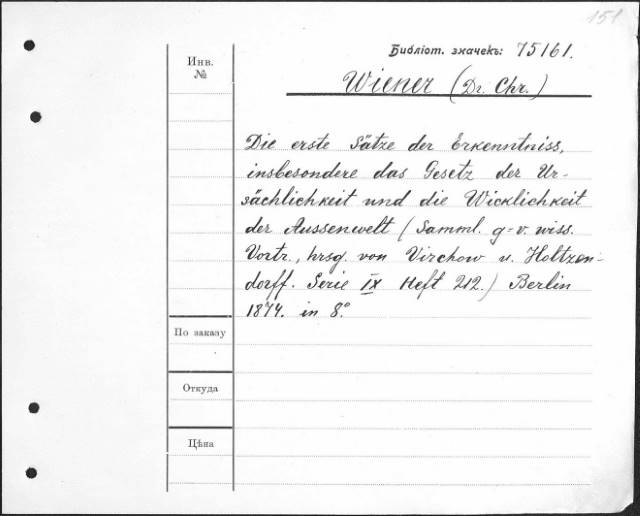 151
Инв.
№
Библіот. значекъ: 75161.
Wiener (Dr. Chr.)
Die erste Sätze der Erkenntniss,
insbesondere das Gesetz der Ur-
sächlichkeit und die Wicklichkeit
der Aussenwelt (Samml. g-v. wiss.
Vortr., hrsg. von Virchow u. Holtzen-
dorff. Serie IX Heft 212.) Berlin
1874. in 8°.
По заказу
Откуда
Цѣна